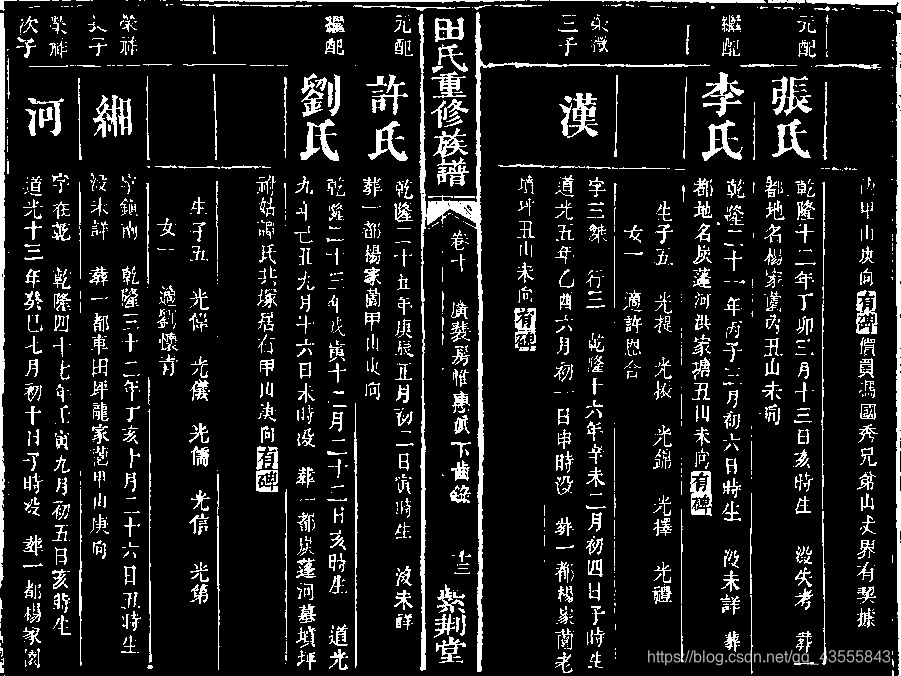 酉甲山庚向有碑價買馮國秀兄弟山夫界有契據
元配
張氏
乾隆十二年丁卯三月十三日亥時生 沒失考 葬一
都地名楊家薗丙丑山未向
繼配
李氏
乾隆二十一年丙子三月初六日時生 沒未詳 葬
都地名炭蓬河洪家塘丑山未向有碑
生子五 光提 光拔 光錦 光擇 光禮
女一 適許恩合
榮徵
三子
漢
字三傑 行三 乾隆十六年辛未二月初四日子時生
道光五年乙酉六月初一日申時没 葬一都楊家薗老
墳坪丑山未向有碑
田氏重修族譜
卷十
廣裝房惟康 下齒錄
十三
紫荆堂
元配
許氏
乾隆二十五年庚辰正月初二日寅時生 没未詳
葬一都楊家薗甲山庚向
繼配
劉氏
乾隆二十三年戊寅十二月二十二日亥時生 道光
九年己丑九月十六日未時没 葬一都炭蓬河墓墳坪
祔姑譚氏共塚居右甲山庚向有碑
生子五 光偉 光儀 光儒 光信 光第
女一 適劉懷青
榮祥
長子
緗
字鎮南 乾隆三十二年丁亥十月二十六日丑時生
没未詳 葬一都車田坪龍家薗甲山庚向
榮祥
次子
河
字在乾 乾隆四十七年壬寅九月初五日亥時生
道光十三年癸巳七月初十日子時没 葬一都楊家薗
https://blog.csdn.net/qq_43555843